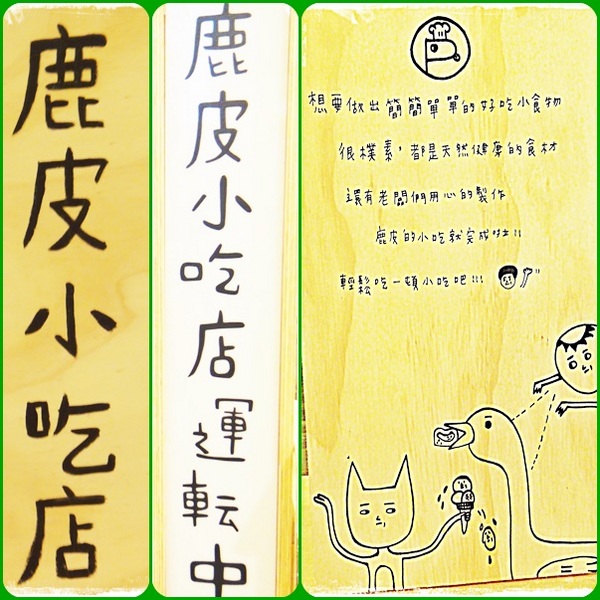 鹿皮小吃店
鹿皮小吃店運転中
想要做出簡簡單單的好吃小食物
很樸素,都是天然健康的食材
還有老闆們用心的製作
鹿皮的小吃就完成哇!!
輕鬆吃一頓小吃吧!!!